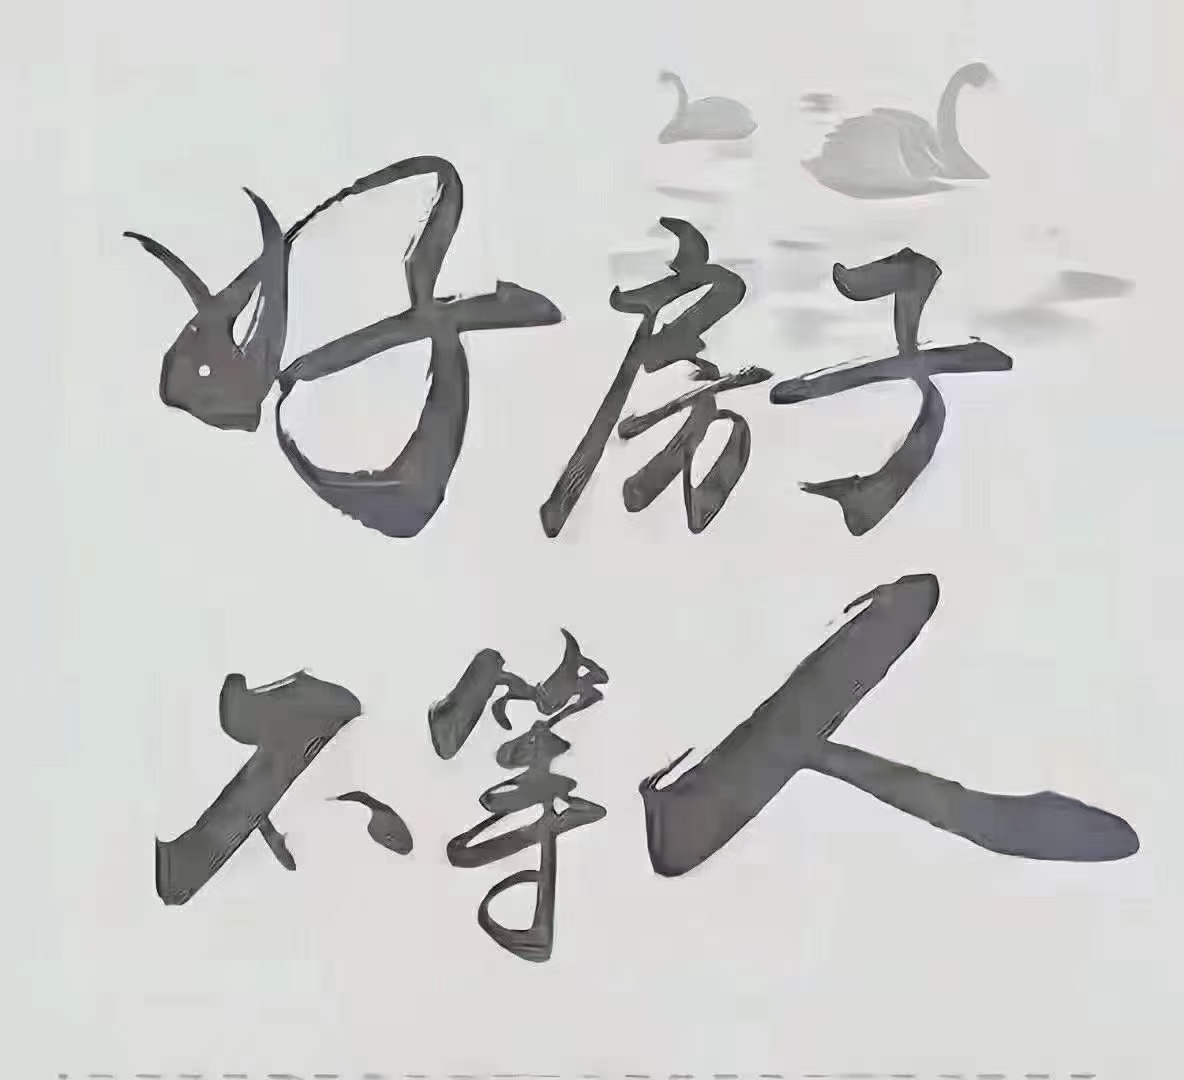 好房子
不等人